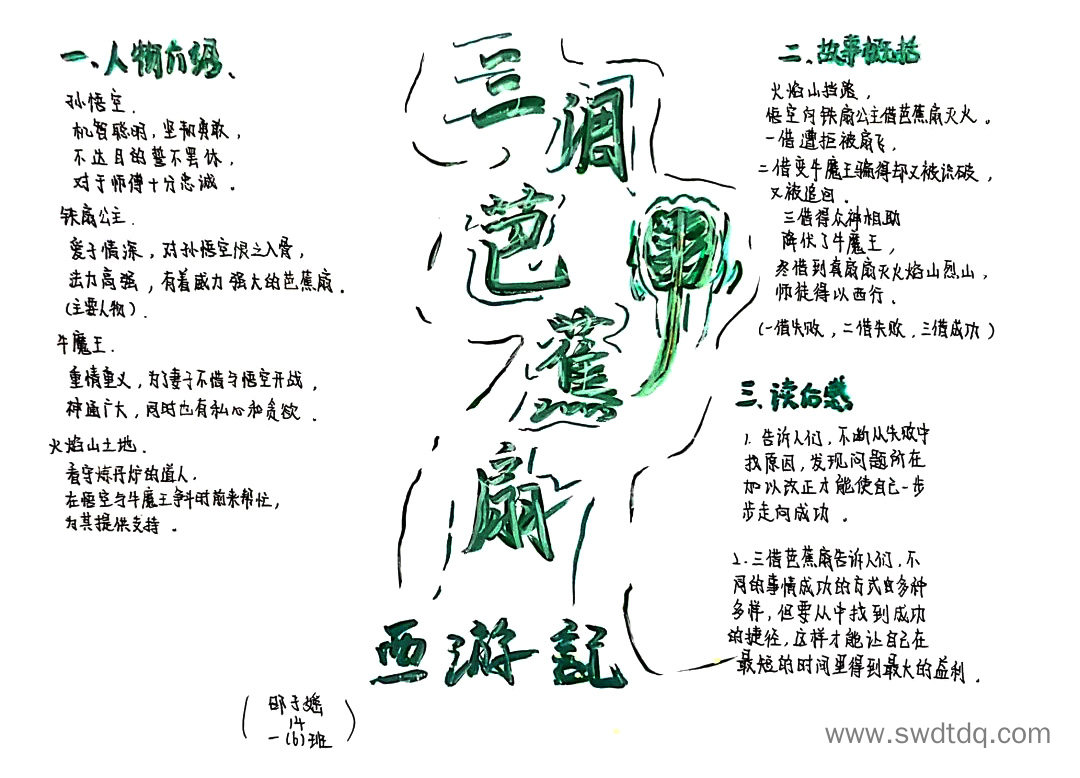 一、人物介绍、
孙悟空.
机智聪明，坚韧勇敢，
不达目的誓不罢休，
对于师傅十分忠诚.
铁扇公主.
爱子情深，对孙悟空恨之入骨，
法力高强，有着威力强大的芭蕉扇.
(主要人物).
牛魔王.
重情重义，为了妻子不惜与悟空开战，
神通广大，同时也有私心和贪欲.
火焰山土地.
看守炼丹炉的道人.
在悟空与牛魔王争斗时前来帮忙，
为其提供支持.
三调
芭
蕉
扇
西游記
二、故事概括
火焰山挡路，
悟空向铁扇公主借芭蕉扇灭火.
一借遭拒被扇飞，
二借变牛魔王骗得却又被识破，
又被追回.
三借得众神相助
降伏了牛魔王，
终借到真扇扇灭火焰山烈山，
师徒得以西行.
(一借失败，二借失败，三借成功)
三、读后感
1. 告诉人们，不断从失败中
找原因，发现问题所在
加以改正才能使自己一步
步走向成功.
2. 三借芭蕉扇告诉人们，不
同的事情成功的方式有多种
多样，但要从中找到成功
的捷径，这样才能让自己在
最短的时间里得到最大的益利.
(邵子
14
一(6)班)
www.swdtdq.com